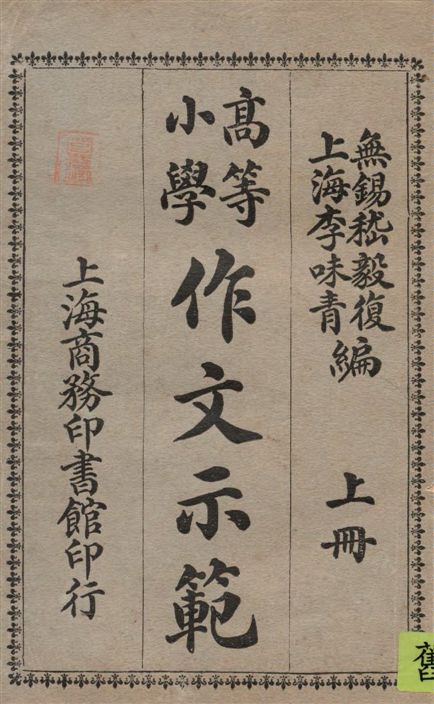 無錫嵇毅復
上海李味青
編
上冊
高等
小學
作文示範
上海商務印書館印行
舊